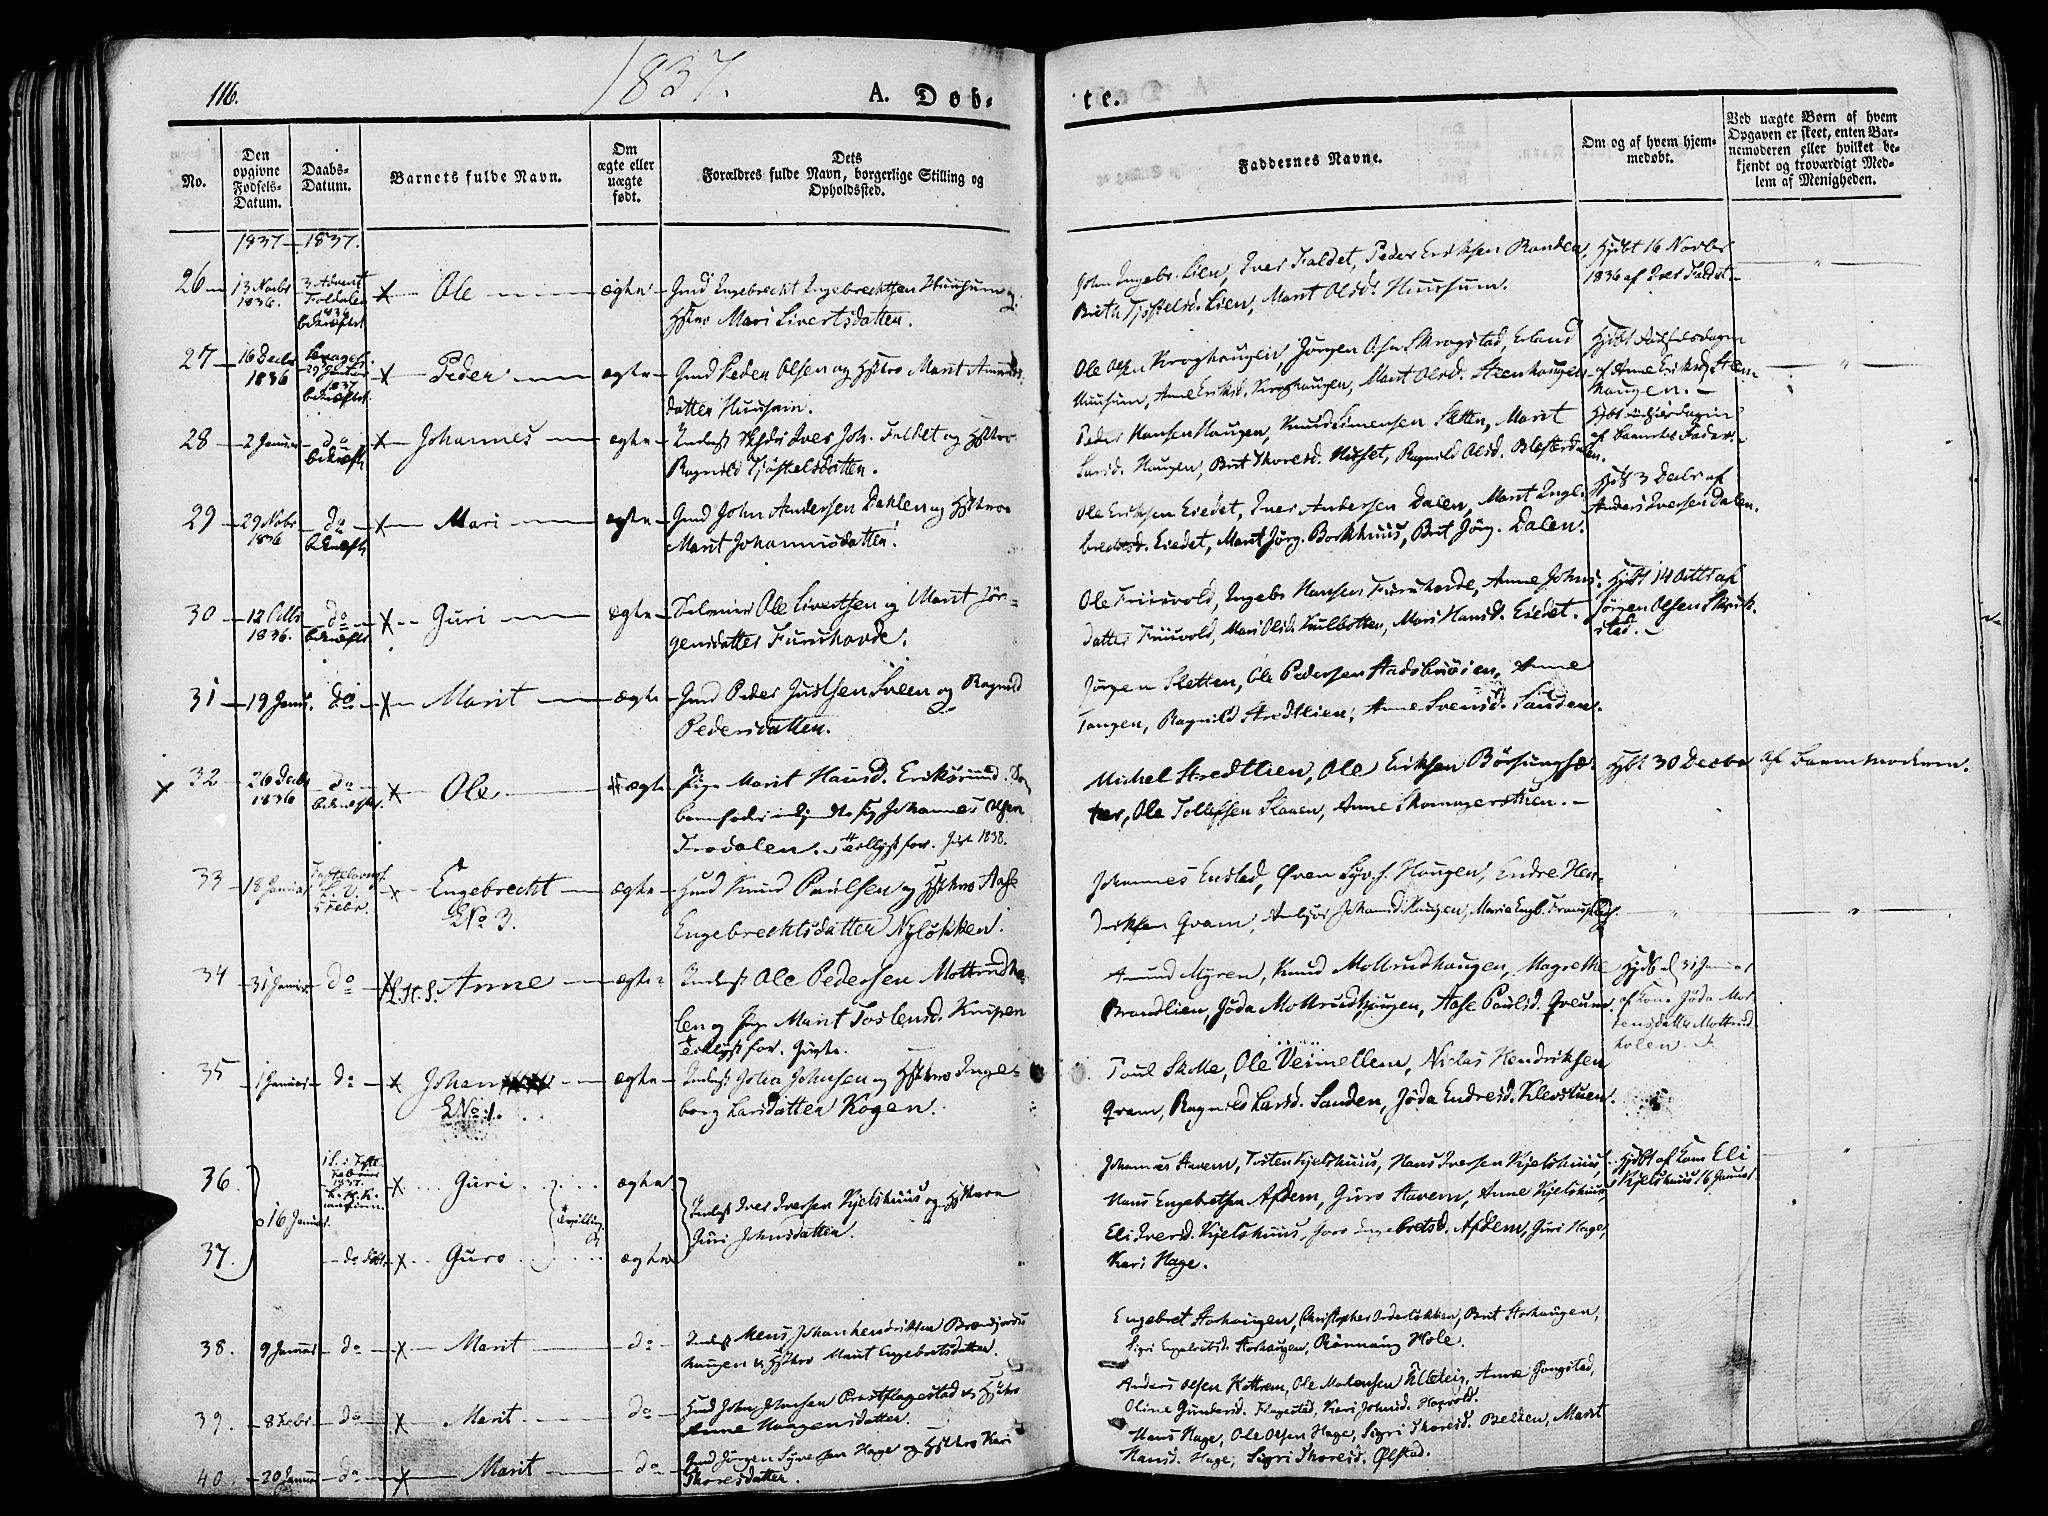 116.
1837.
A. Døb-
te.
No.
Den opgivne Fødsels-Datum.
Daabs-Datum.
Barnets fulde Navn.
Om ægte eller uægte født.
Dets Forældres fulde Navn, borgerlige Stilling og Opholdssted.
Faddernes Navne.
Om og af hvem hjemmedøbt.
Ved uægte Børn af hvem Opgaven er skeet, enten Barnemoderen eller hvilket bekjendt og troværdigt Medlem af Menigheden.
1837 — 1837.
26 — 13 Novbr 1836. 3 Advent Foldale 1836 bekræftet × Ole ægte Gmd Engebrecht Engebrechtsen Huusum og
Hstro Mari Sivertsdatten.
John Ingebr. Lien, Iver Faldet, Peder Eriksen Randen,
Brith Tjøstelsd. Lien, Marit Olsd. Huusum.
Hjdbt 16 Novbr
1836 af Iver Faldet
27 — 16 Decbr 1836 29 Januar 1837 bekræftet × Peder ægte Gmd Peder Olsen og Hstro Marit Amunds-
datten Huusum.
Ole Olsen Kroghaugen, Jørgen Olsn Skrogstad, Erland
Huusum, Anne Eriksd. Kroghaugen, Marit Olsd. Steenhaugen
Hjdbt Fødselsdagen
af Anne Eriksd Steen-
haugen.
28 2 Januar do bekræft × Johannes ægte Inderst Iver Joh. Faldet og Hstro
Ragnild Tjøstelsdatten.
Peder Hansen Haugen, Knud Simensen Sletten, Marit
Larsd. Haugen, Brit Thoresd. Huset, Ragnild Olsd. Blesterdalen.
af Barnets Fader.
29 29 Novbr 1836 do bekræft × Mari ægte Gmd John Andersen Dahlen og Hstroe
Marit Johannisdatten.
Ole Eriksen Eiedet, Iver Andersen Dalen, Marit Engl-
brechtsd. Eiedet, Marit Jørg. Borkhuus, Brit Jørg. Dalen.
Hjdbt 3 Decbr af
Anders Iversen Dalen.
30 12 Octbr 1836. do bekræft × Guri ægte Selveier Ole Sivertsen og Marit Jør-
gensdatter Furuhovde.
Ole Friisvold, Ingebr Hansen Furuhovde, Anne Johns-
datter Friisvold, Mari Olsd. Kulbotten, Mari Hansd. Eiedet.
Hjdbt 14 Octbr af
Jørgen Olsen Skrut-
stad.
31 19 Janr. do × Marit ægte Gmd Peder Justsen Sveen og Ragnild
Pedersdatten.
Jørgen Sletten, Ole Pedersen Stadsbuøien, Anne
Tangen, Ragnild Strædtlien, Anne Svensd. Sanden.
× 32 26 Decbr 1836 do bekræft × Ole uægte Pige Marit Hansd. Eriksrud.
barnefader Johannes Olsen
Frodalen.
1838.
Michel Strædtlien, Ole Eriksen Børsungsæ-
ter, Ole Tollefsen Slaaen, Anne Skomagerstuen.
Hjbt 30 Decbr af Barnemoderen.
33 18 Januar Fastelavns S. 5 Febr. × Engebrecht
E No 3.
ægte Huud Knud Paulsen og Hstro Aase
Engebrechtsdatten Nyløkken.
Johannes Enstad, Øven Syv.s. Haugen, Endre Hen-
driksen Qvam, Ambjør Johansd Haugen, Maria Engb. Fraustad
34 31 Januar do × Anne ægte Inderst Ole Pedersen Mottrudho-
len og Pige Marit Tostensd. Knipen
Amund Myren, Knud Mottrudhaugen, Magrethe
Brandlien, Jøda Mottrudhaugen, Aase Paulsd. Qveum
Hjdbt d 31 Januar
af Kone Jøda Mor-
tensdatter Mottrud-
holen.
35 1 Januar do × Johan
E No 1.
ægte Inderst John Johnsen og Hstro Inge-
borg Larsdatten Kogen.
Poul Skotte, Ole Veimellem, Niclas Hendriksen
Qvam, Ragnild Larsd. Sanden, Jøda Endresd. Klevstuen.
36. 16 Januar. 1 S. i Faste Februar 1837. × Guri ægte
Tvillinger
Inderst Iver Iversen Kjelshuus og Hstroe
Guri Johnsdatten.
Johannes Stavem, Tosten Kjelshuus, Hans Iversen Kjelshuus,
Hans Engebretsen Afdem, Guro Stavern, Anne Kjelshuus,
Eli Iversd. Kjelshuus, Engebretsd. Afdem, Guri Hage,
Kari Hage.
Hjdbt af Kone Eli
Kjelshuus 16 Januar
37. do døbt × Guro ægte
38. 9 Januar do × Marit do Inderst Mens Johanhendriksen Brændjords-
haugen & Hstro Marit Engebretsdatten.
Engebret Storhaugen, Christopher Løkken, Brit Storhaugen,
Sigri Engebretsd. Storhaugen, Rønnaug Hole.
39. 8 Febr do × Marit do Huud John Johnsen Præstflagestad & Hstro
Anne Haagensdatter.
Anders Olsen Hattrem, Ole Mortensen Killstein, Anne Gongstad,
Oline Gundersd. Flagestad, Kari Johnsd. Horvold.
40. 20 Januar do × Marit do Gmd Jørgen Syversen Hage og Hstro Kari
Thoresdatter.
Hans Hage, Ole Olsen Hage, Sigri Thoresd. Belden, Marit
Hansd. Hage, Sigri Thoresd. Ølstad.